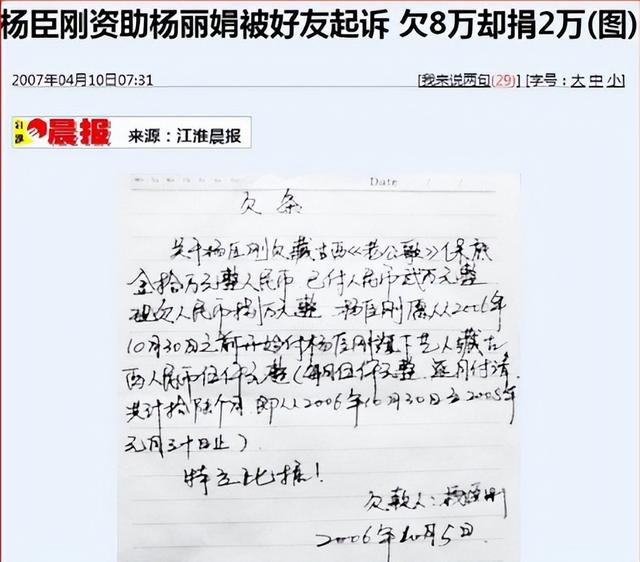 杨臣刚资助杨丽娟被好友起诉 欠8万却捐2万(图)
2007年04月10日07:31 [我来说两句(29)] [字号：大 中 小]
江淮晨报 来源：江淮晨报
Date / /
欠条
关于杨臣刚欠藏古西《老公歌》保底
金拾万元整人民币 已付人民币贰万元整
现欠人民币捌万元整 杨臣刚愿从2006年
10月30日之前开始付杨臣刚旗下艺人藏古
西人民币伍仟元整(每月伍仟元整 逐月付清
共计拾陆个月 即从2006年10月30日至2008年
元月三十日止)
特立此据!
欠款人:杨臣刚
2006年10月5日